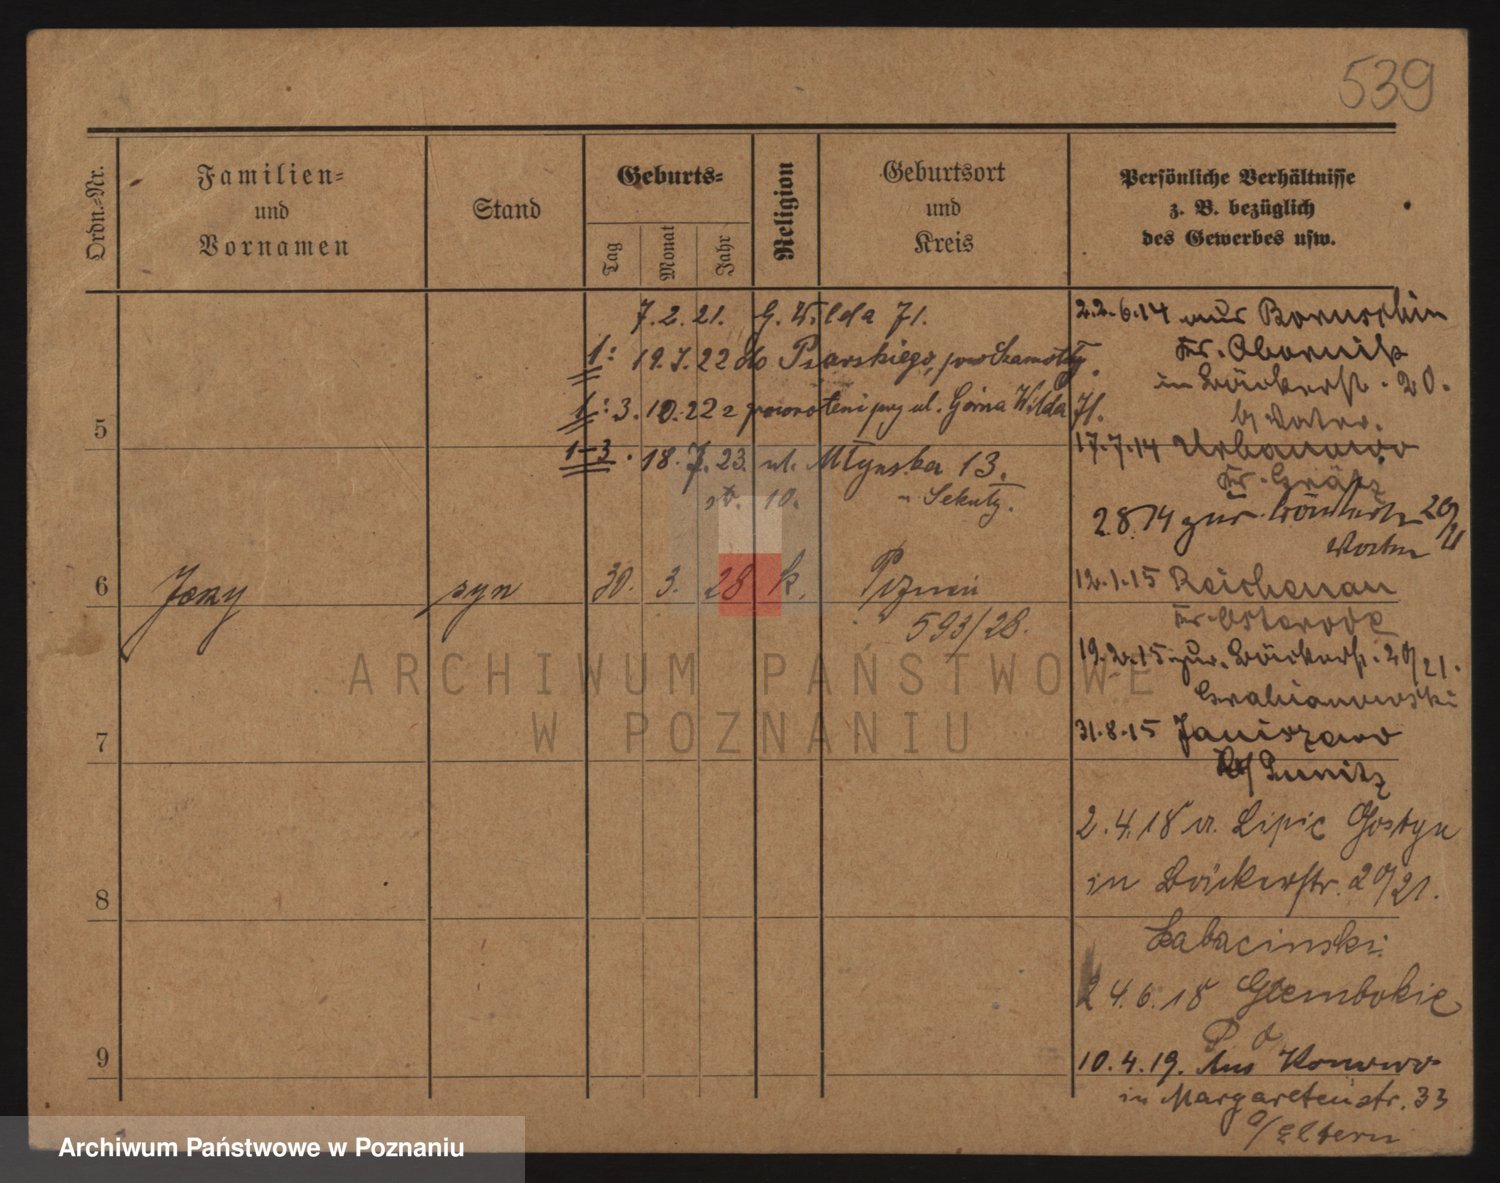 539
Ordn.-Nr.
Familien-
und
Vornamen
Stand
Geburts-
Tag
Monat
Jahr
Religion
Geburtsort
und
Kreis
Persönliche Verhältnisse
z. B. bezüglich
des Gewerbes usw.
7.2.21. G. Wilda 71.
1: 19.7.22 do Psarskiego,
1: 3.10.22 z ul. Górna Wilda 71.
1-3. 18.7.23. ul. Młyńska 13.
10.
5
6
Jerzy
syn
30. 3. 28 k.
593/28.
7
8
9
22.6.14 aus
Kr. Obornik
in Bäckerstr. 20.
b/ Vater.
17.7.14 Urbanowo
Kr. Grätz
2.8.14 zur. Bäckerstr 20/21
12.1.15 Reichenau
Kr. Osterode
19.2.15 zur. Bäckerstr. 20/21.
31.8.15 Janiszewo
Punitz
2.4.18 v. Lipie Gostyn
in Bäckerstr. 20/21.
Labacinski
24.6.18 Glembokie
P. O
10.4.19. Aus
in Margaretenstr. 33
a/ Eltern
ARCHIWUM PAŃSTWOWE
W POZNANIU
Archiwum Państwowe w Poznaniu